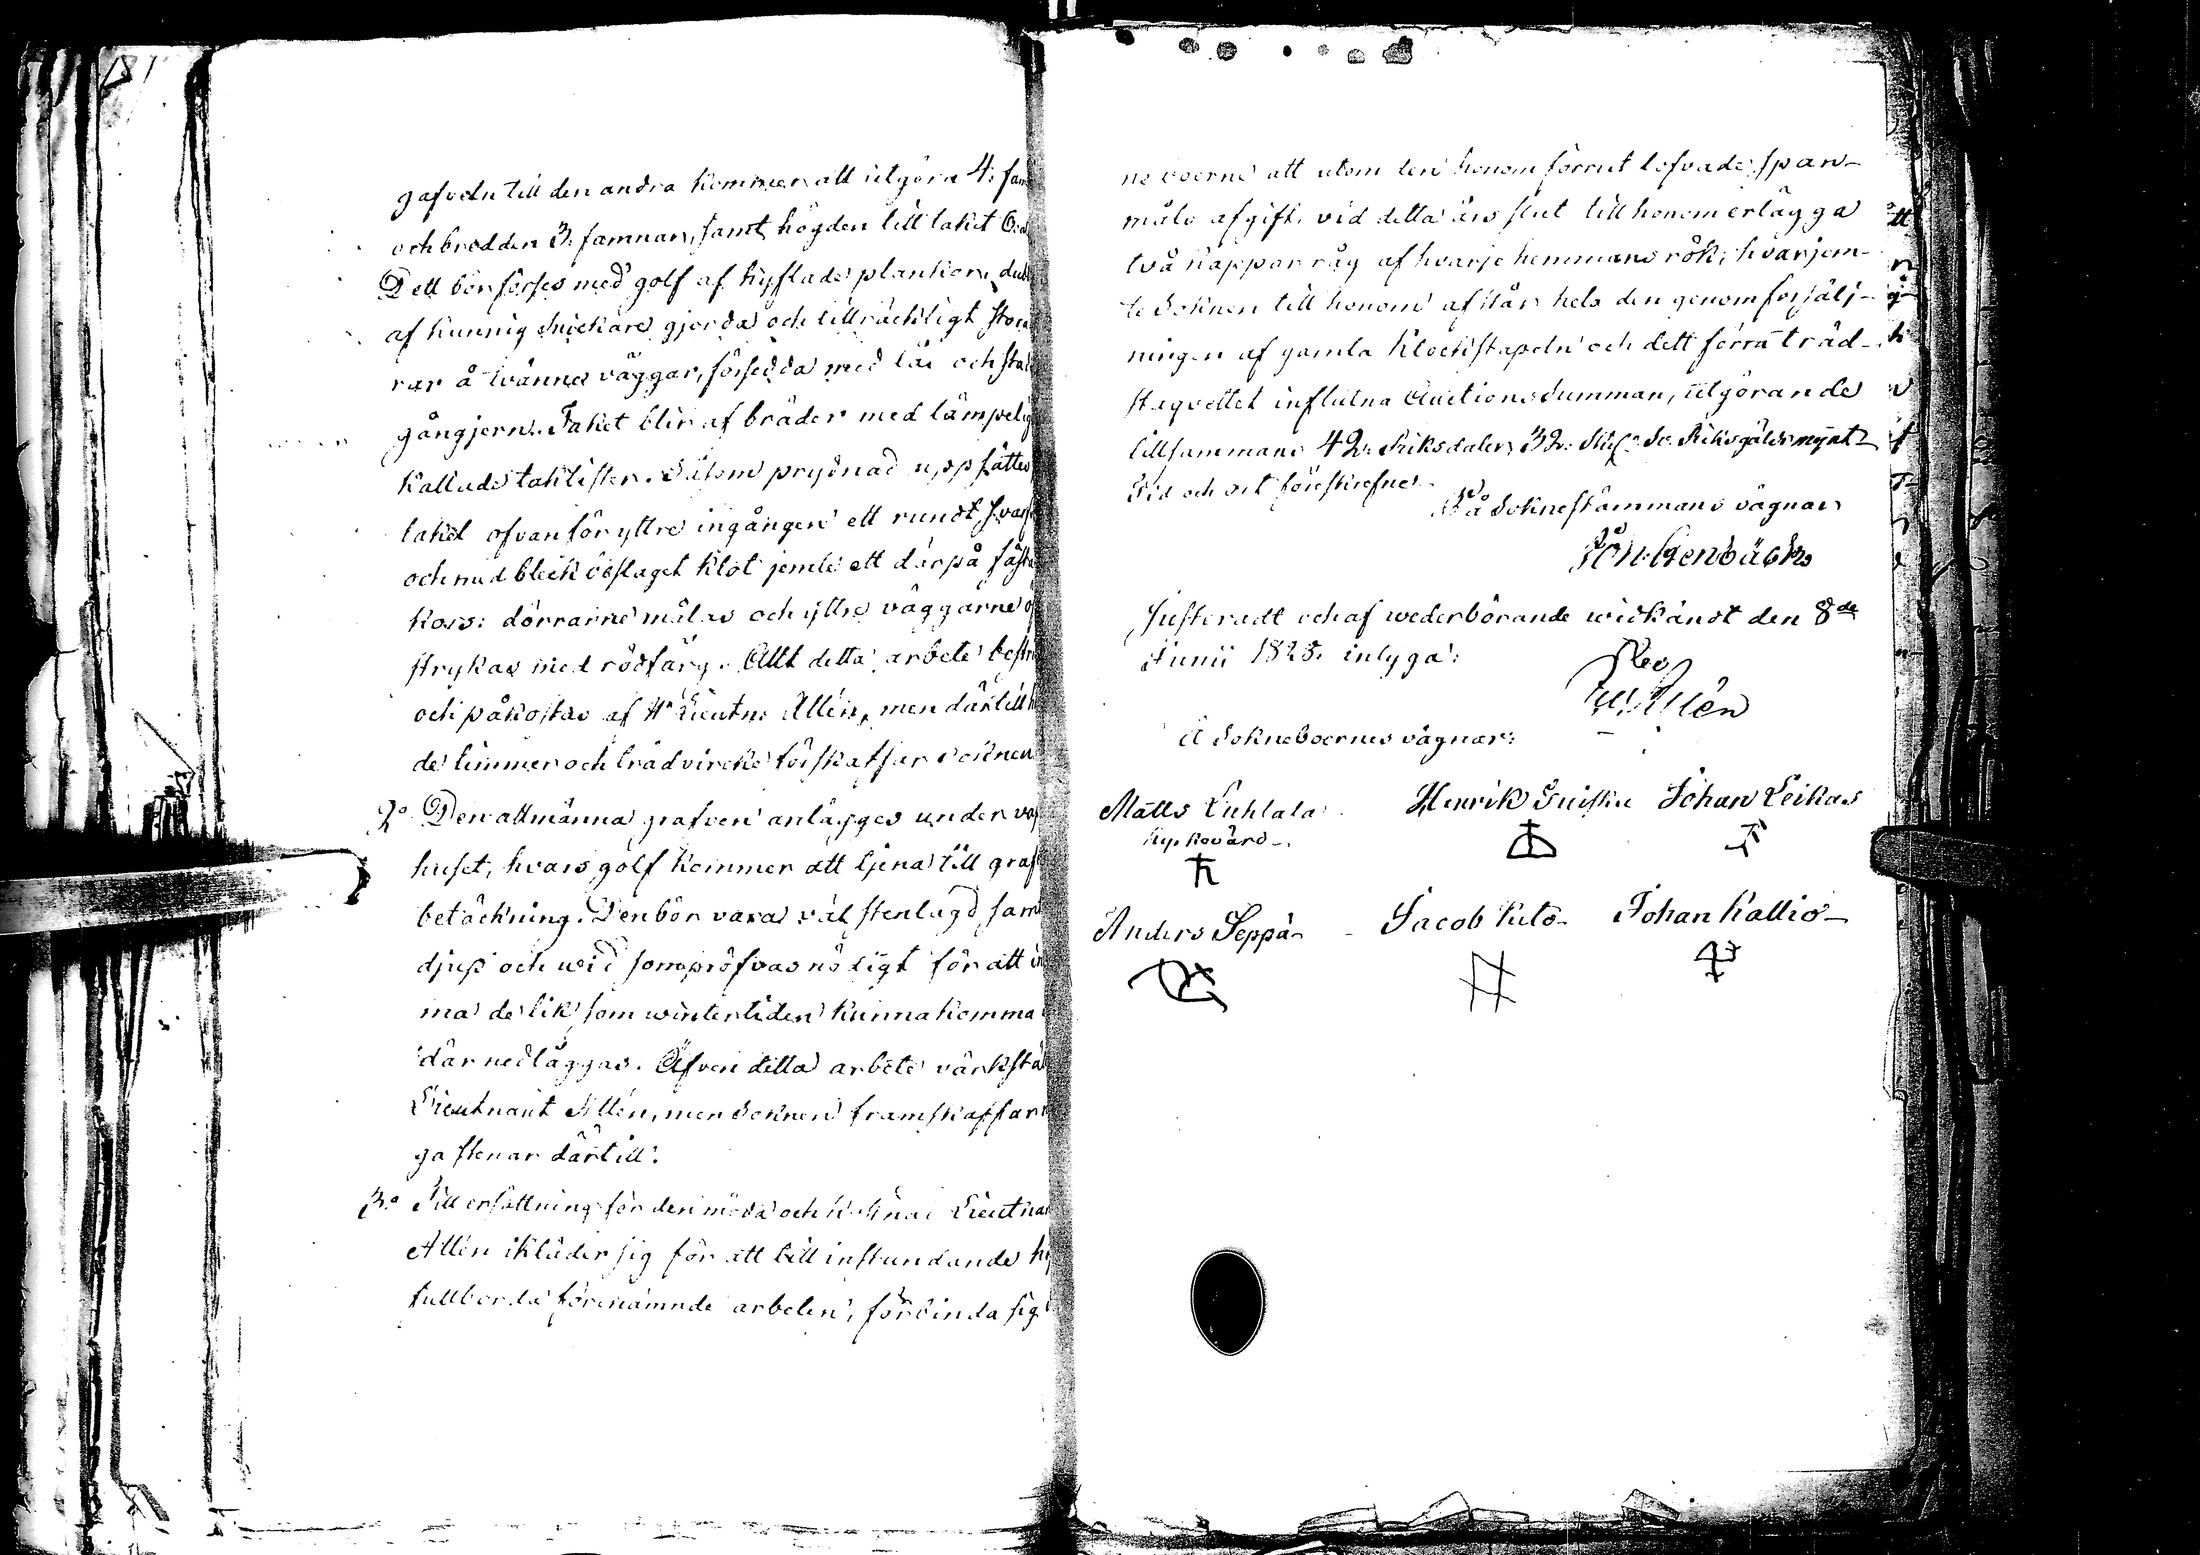 gafveln till den andra kommer att utgöra 4: fam
och bredden 3: famnar, samt högden till taket 6:
Dett bör förses med golf af hyflade plankor,
af kunnig snickare gjorda och tillräckligt stor
rar å tvänne väggar, försedda med lås och sta
gångjern. Taket blir af bräder med lämpelig
kallade taklister. Såsom prydnad uppsättes
taket ofvanför yttre ingången ett rundt, svarf
och med bleck beslaget klot jemte ett därpå fäst
kors: dörrarne målas och yttre väggarne
strykas med rödfärg. Allt detta arbete bestri
och påkostas af Hr Lieutn: Allén, men därtill
de timmer och trädvircke förskaffar soknen
2o Den allmänna grafven anlägges under va
huset, hvars golf kommer att tjena till graf
betäckning. Den bör vara väl stenlagd, samt
djup och wid som pröfvas nödigt för att
ma de lik, som wintertiden kunna komma
där nedläggas. Äfven detta arbete värkstäl
Lieutnant Allén, men soknen framskaffar
ga stenar därtill.
3o Till ersättning för den möda och kostnad Lieutnan
Allén ikläder sig för att till instundande
fullborda förenämnde arbeten, förbinda sig
ne boerne att utom den honom förrut lofvade span-
måls afgift, vid detta års slut till honom erlägga
två kappar råg af hvarje hemmans rök; hvarjem-
te soknen till honom afstår hela den genom försälj-
ningen af gamla klockstapeln och dett förra träd-
staquettet influtna Auctions summan, utgörande
tillsammans 42: Riksdaler 32: Sk: Sv: Riksgälds mynt
Tid och ort förestrefne.
På Soknestämmans vägnar
Joh: Stenbäck
Justeradt och af wederbörande widkändt den 8de
Junii 1825. intyga:
Allén
Å Sokneboernes vägnar:
Matts Luhtala Henrik Juiska Johan Leikas
Kyrkovärd
Anders Seppä Jacob Keto Johan Kallio